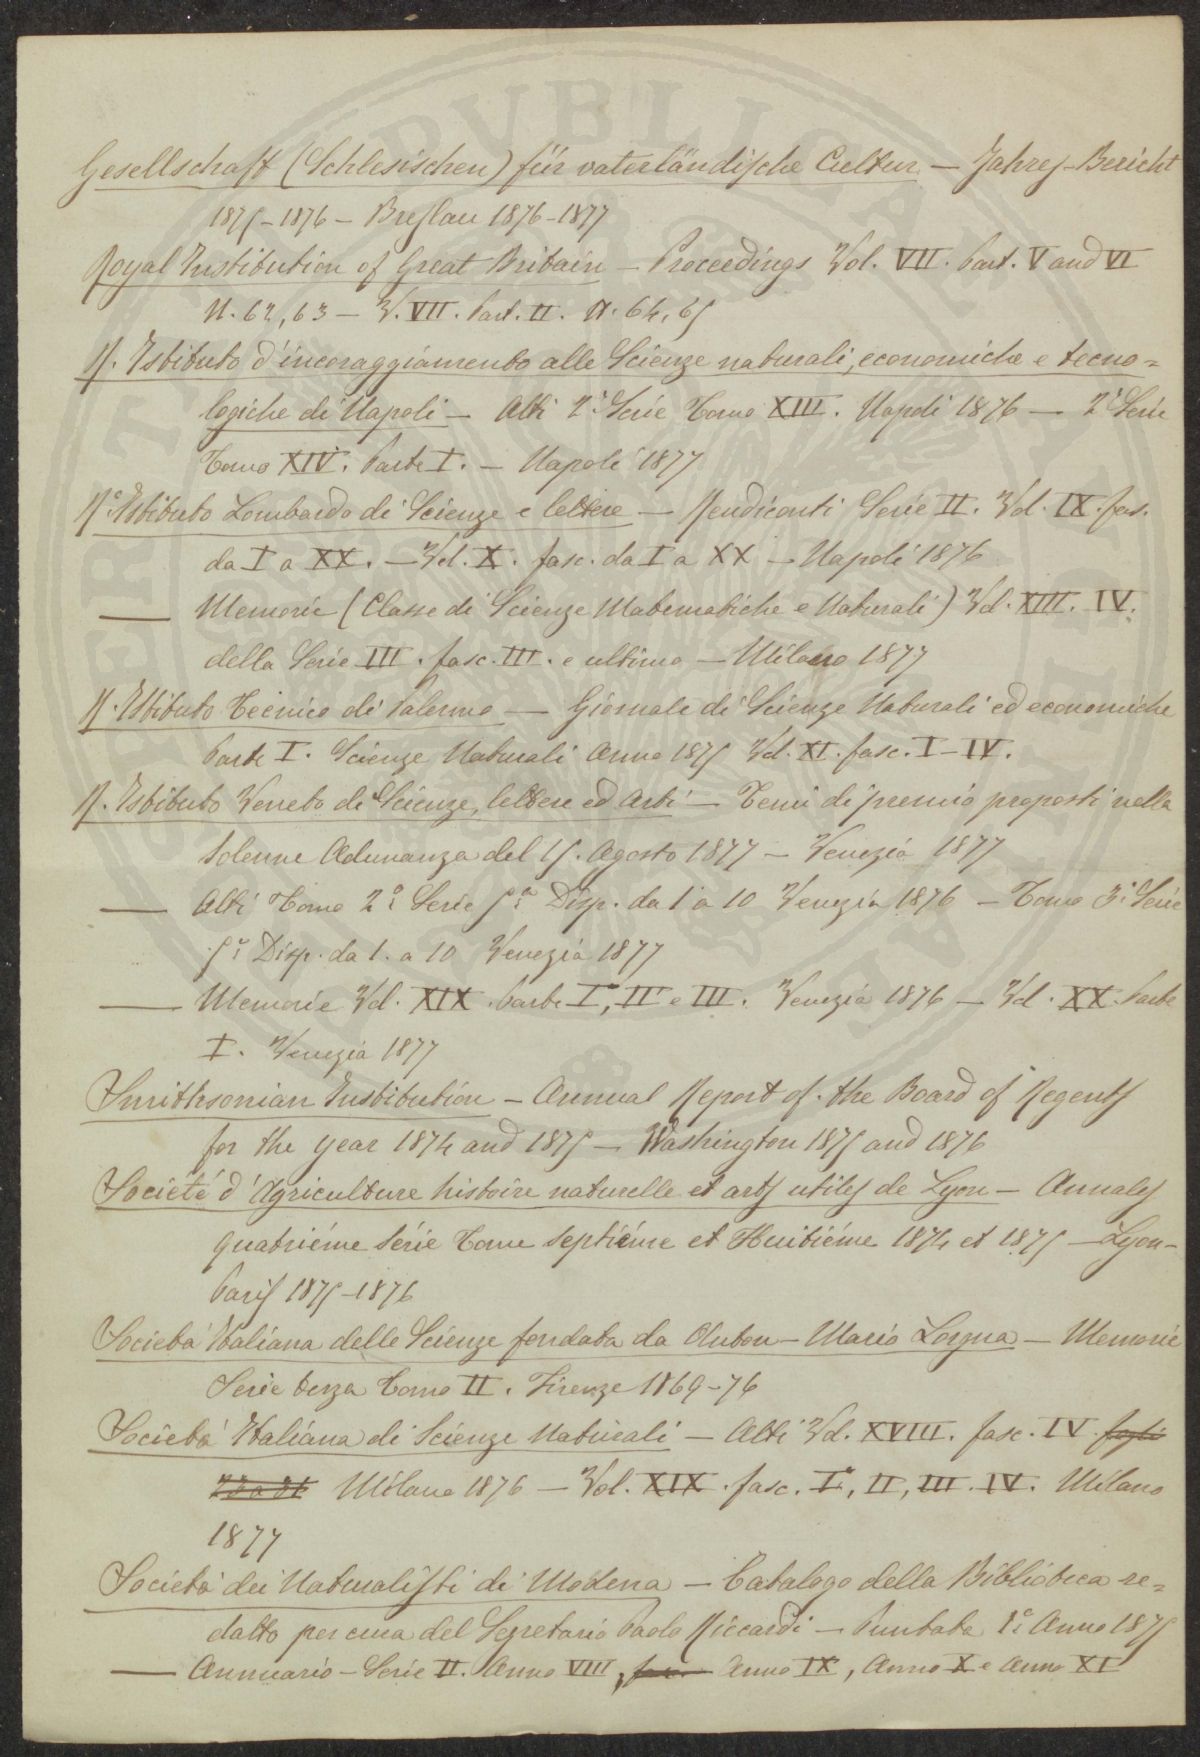 Gesellschaft (Schlesischen) für vaterländische Cultur — Jahres-Bericht
1875-1876 — Breslau 1876-1877
Royal Institution of Great Britain — Proceedings Vol. VII. Part. V and VI
N. 62, 63 — V. VII. Part. II. N. 64, 65
R. Istituto d'incoraggiamento alle Scienze naturali, economiche e tecno=
logiche di Napoli — Atti 2ª Serie Tomo XIII. Napoli 1876 — 2ª Serie
Tomo XIV. Parte I. — Napoli 1877
R.º Istituto Lombardo di Scienze e lettere — Rendiconti Serie II. Vol. IX. fas.
da I a XX. — Vol. X. fasc. da I a XX — Napoli 1876
— Memorie (Classe di Scienze Matematiche e Naturali) Vol. XIII. IV.
della Serie III. fasc. III. e ultimo — Milano 1877
R. Istituto Tecnico di Palermo — Giornale di Scienze Naturali ed economiche
Parte I. Scienze Naturali Anno 1875 Vol. XI. fasc. I-IV.
R. Istituto Veneto di Scienze, lettere ed Arti — Temi di premio proposti nella
Solenne Adunanza del 15. Agosto 1877 — Venezia 1877
— Atti Tomo 2º Serie 5ª Disp. da 1 a 10 Venezia 1876 — Tomo 3º Serie
5ª Disp. da 1. a 10 Venezia 1877
— Memorie Vol. XIX. Parte I, II e III. Venezia 1876 — Vol. XX Parte
I. Venezia 1877
Smithsonian Institution — Annual Report of the Board of Regents
for the year 1874 and 1875 — Washington 1875 and 1876
Société d'Agriculture histoire naturelle et arts utiles de Lyon — Annales
quatriéme série Tome septiéme et Huitiéme 1874 et 1875 — Lyon-
Paris 1875-1876
Società Italiana delle Scienze fondata da Anton-Mario Lorgna — Memorie
Serie terza Tomo II. Firenze 1869-76
Società Italiana di Scienze Naturali — Atti Vol. XVIII. fasc. IV. fogli
23 a 31 Milano 1876 — Vol. XIX. fasc. I, II, III. IV. Milano
1877
Società dei Naturalisti di Modena — Catalogo della Biblioteca re=
datto per cura del Segretario Paolo Riccardi — Puntata 1ª Anno 1875
— Annuario — Serie II. Anno VIII, Anno IX, Anno X e Anno XI